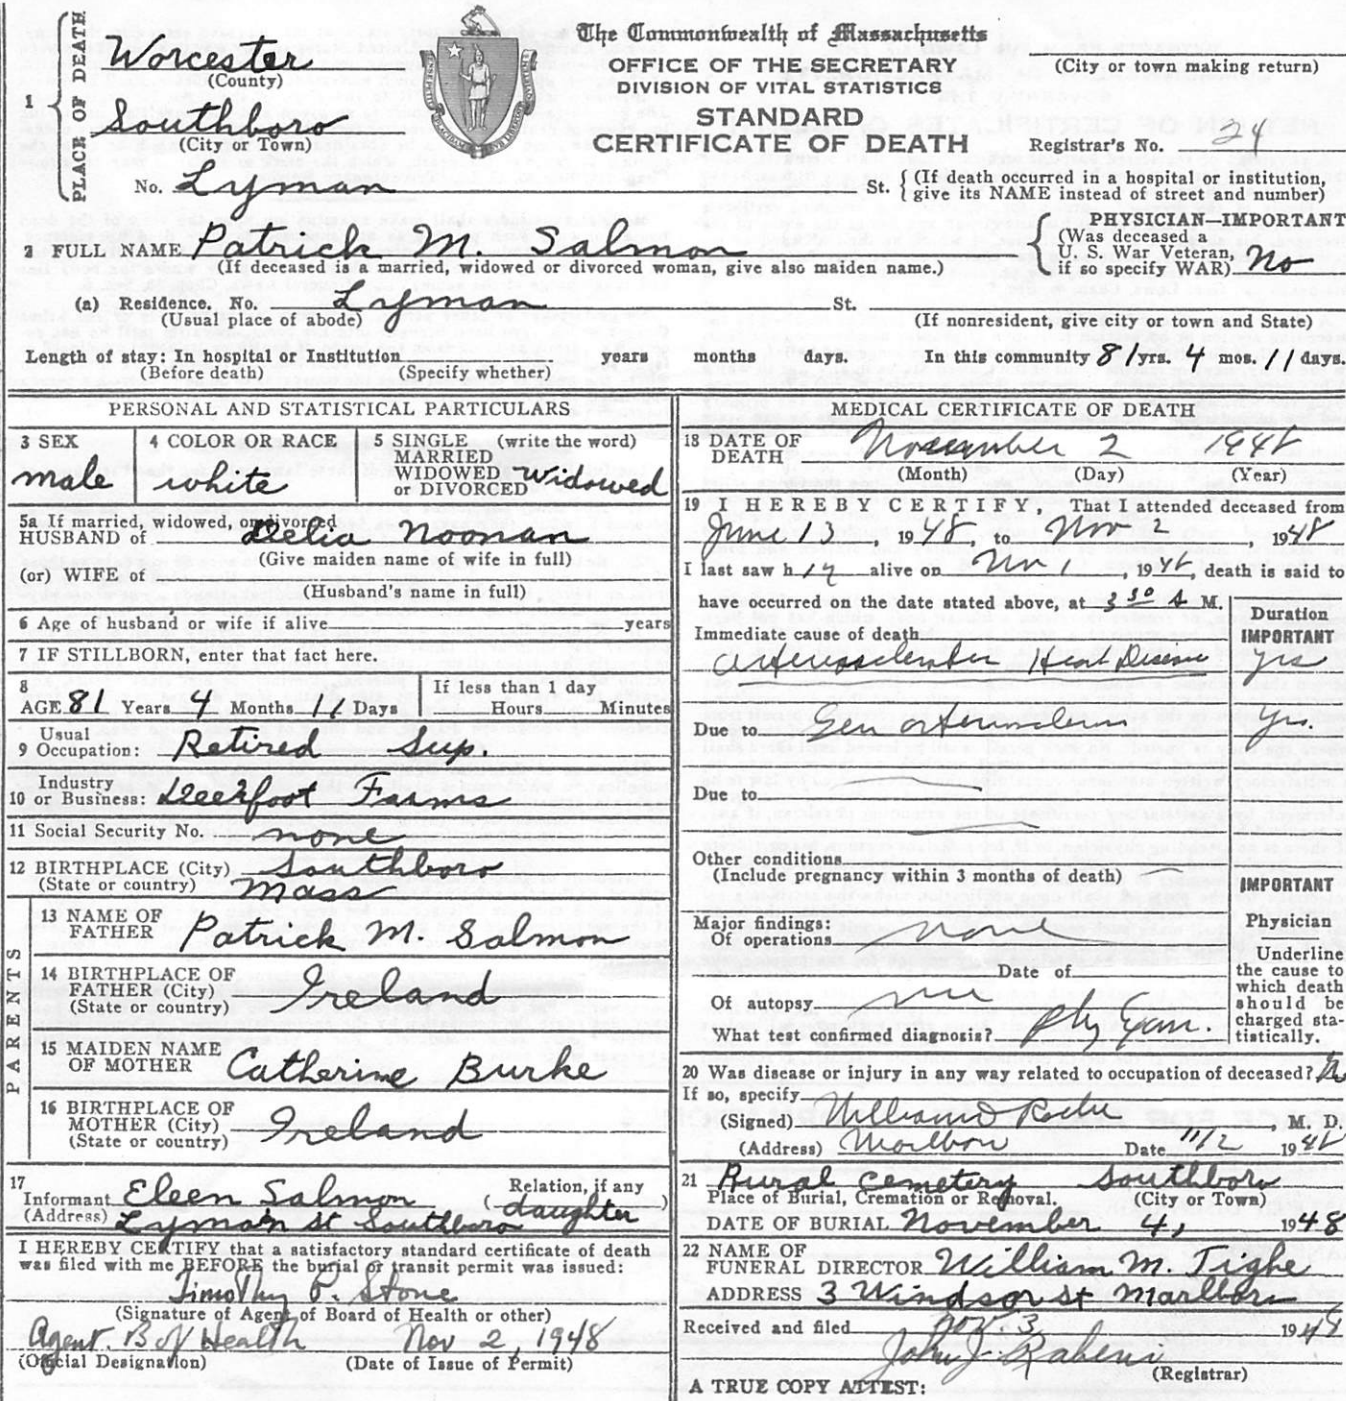 The Commonwealth of Massachusetts
OFFICE OF THE SECRETARY
DIVISION OF VITAL STATISTICS
STANDARD
CERTIFICATE OF DEATH
1 PLACE OF DEATH
Worcester
(County)
Southboro
(City or Town)
No. Lyman St. (If death occurred in a hospital or institution, give its NAME instead of street and number)
(City or town making return)
Registrar's No. 24
2 FULL NAME Patrick M. Salmon
(If deceased is a married, widowed or divorced woman, give also maiden name.)
PHYSICIAN—IMPORTANT
(Was deceased a
U. S. War Veteran,
if so specify WAR) No
(a) Residence. No. Lyman St.
(Usual place of abode)
(If nonresident, give city or town and State)
Length of stay: In hospital or Institution years months days. In this community 81 yrs. 4 mos. 11 days.
(Before death) (Specify whether)
PERSONAL AND STATISTICAL PARTICULARS
3 SEX
male
4 COLOR OR RACE
white
5 SINGLE (write the word)
MARRIED
WIDOWED
or DIVORCED widowed
5a If married, widowed, or divorced
HUSBAND of Delia Noonan
(Give maiden name of wife in full)
(or) WIFE of
(Husband's name in full)
6 Age of husband or wife if alive years
7 IF STILLBORN, enter that fact here.
8 AGE 81 Years 4 Months 11 Days
If less than 1 day
Hours Minutes
9 Usual Occupation: Retired Sup.
10 Industry or Business: Deerfoot Farms
11 Social Security No. none
12 BIRTHPLACE (City) Southboro
(State or country) Mass
PARENTS
13 NAME OF FATHER Patrick M. Salmon
14 BIRTHPLACE OF
FATHER (City) Ireland
(State or country)
15 MAIDEN NAME
OF MOTHER Catherine Burke
16 BIRTHPLACE OF
MOTHER (City) Ireland
(State or country)
17 Informant Eleen Salmon
Relation, if any
(daughter)
(Address) Lyman St Southboro
I HEREBY CERTIFY that a satisfactory standard certificate of death
was filed with me BEFORE the burial or transit permit was issued:
Timothy P. Stone
(Signature of Agent of Board of Health or other)
Agent. B of Health Nov 2, 1948
(Official Designation) (Date of Issue of Permit)
MEDICAL CERTIFICATE OF DEATH
18 DATE OF DEATH November 2 1948
(Month) (Day) (Year)
19 I HEREBY CERTIFY, That I attended deceased from
June 13, 1948, to Nov 2 1948
I last saw h alive on Nov 1, 1948, death is said to
have occurred on the date stated above, at 3 30 A M.
Duration
IMPORTANT
Immediate cause of death
Arteriosclerotic Heart Disease yrs
Due to Gen yr.
Due to
Other conditions
(Include pregnancy within 3 months of death)
IMPORTANT
Major findings:
Of operations none
Date of
Of autopsy
What test confirmed diagnosis? Phy Exam.
Physician
Underline
the cause to
which death
should be
charged sta-
tistically.
20 Was disease or injury in any way related to occupation of deceased?
If so, specify
(Signed) William D Roche, M. D.
(Address) Marlboro Date 11/2 1948
21 Rural Cemetery Southboro
Place of Burial, Cremation or Removal. (City or Town)
DATE OF BURIAL November 4, 1948
22 NAME OF
FUNERAL DIRECTOR William M. Tighe
ADDRESS 3 Windsor St Marlboro
Received and filed Nov. 3 19
John J.
(Registrar)
A TRUE COPY ATTEST: